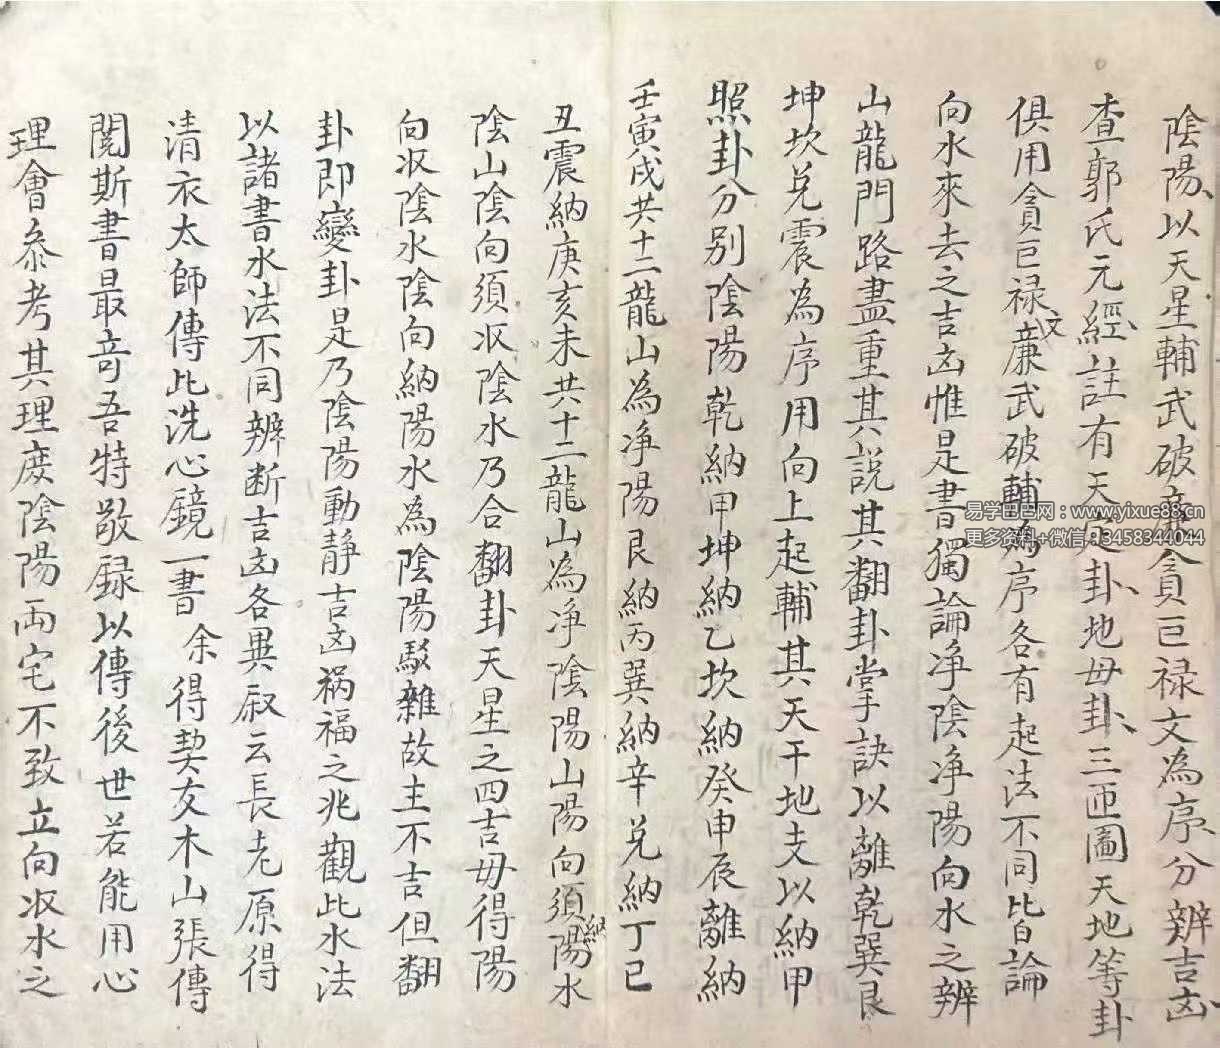 陰陽以天星輔武破廉貪巨禄文為序分辨吉凶
查郭氏元經註有天定卦地毋卦三匝圖天地等卦
俱用貪巨禄文廉武破輔為序各有起法不同皆論
向水來去之吉凶惟是書獨論净陰净陽向水之辨
山龍門路盡重其説其翻卦掌訣以離乾巽艮
坤坎兑震為序用向上起輔其天干地支以納甲
照卦分别陰陽乾納甲坤納乙坎納癸申辰離納
壬寅戌共十二龍山為净陽艮納丙巽納辛兑納丁巳
丑震納庚亥未共十二龍山為净陰陽山陽向須納陽水
陰山陰向須収陰水乃合翻卦天星之四吉毋得陽
向収陰水陰向納陽水為陰陽駁雜故主不吉但翻
卦即變卦是乃陰陽動静吉凶禍福之兆觀此水法
以諸書水法不同辨断吉凶各異叙云長老原得
清衣太師傳此洗心鏡一書 余得契友木山張傳
閲斯書最竒吾特敬録以傳後世若能用心
理會叅考其理庶陰陽両宅不致立向収水之
易学巴巴网：www.yixue88.cn
更多资料+微信：13458344044